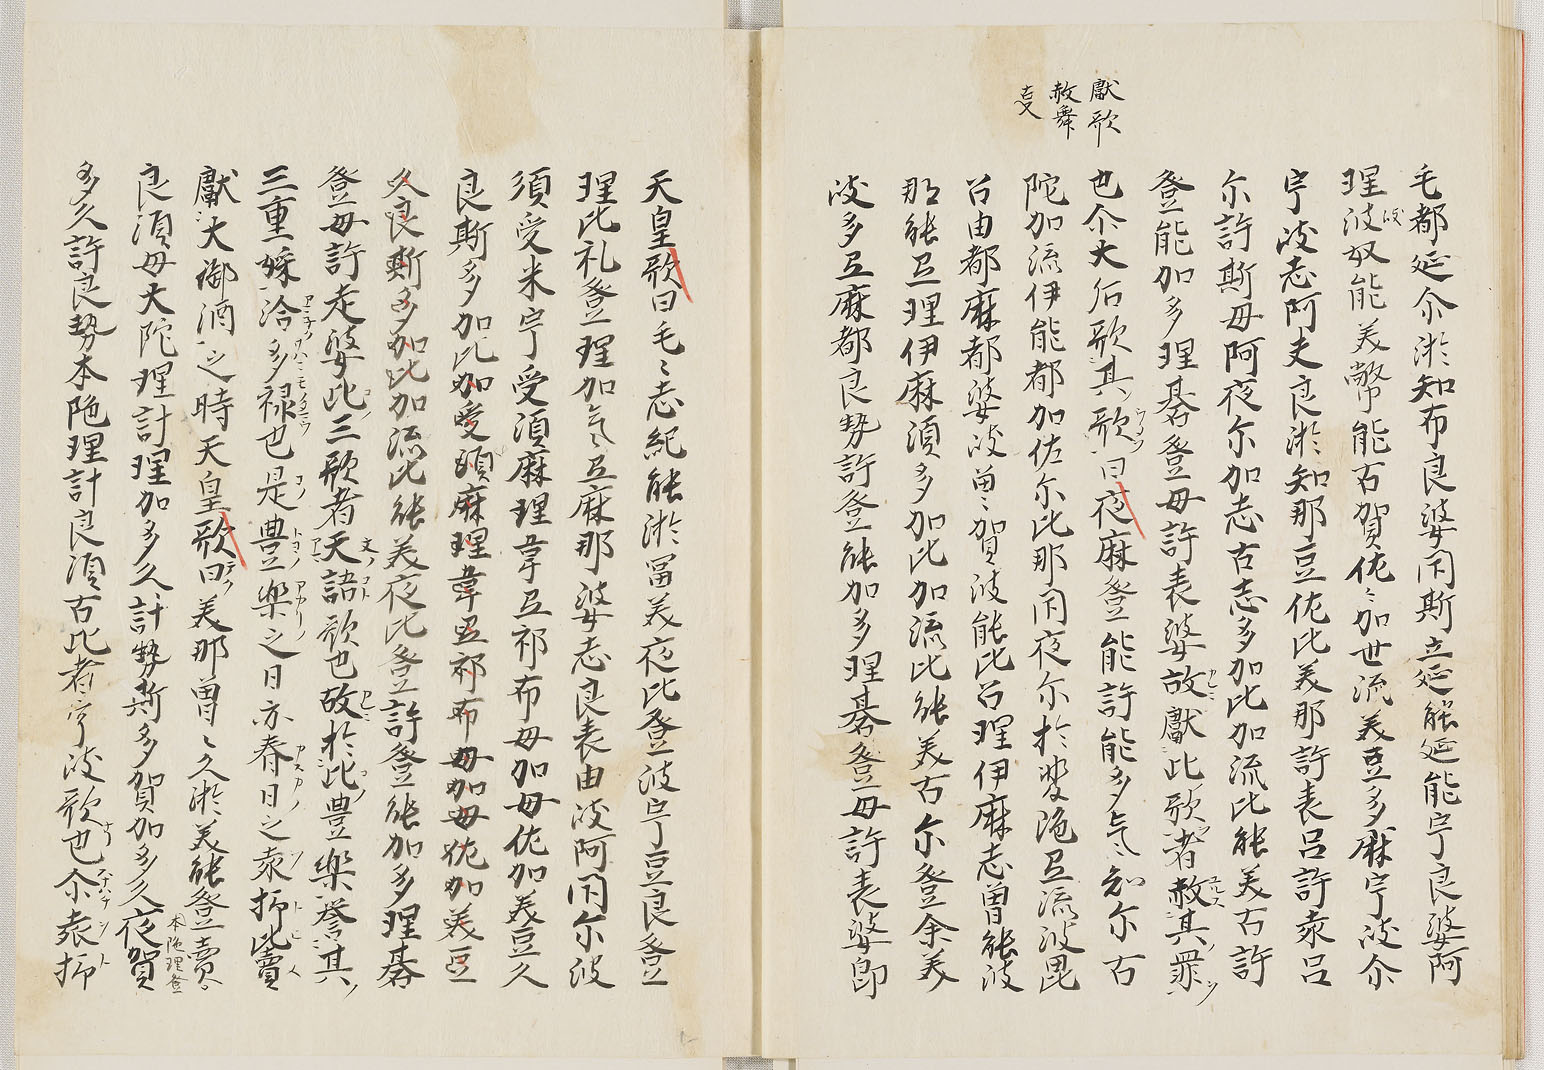 獻歌
赦舞
壴又
毛都延尒淤知布良婆閇斯豆延能延能宇良婆阿
理波奴能美幣能古賀佐〻加世流美豆多麻宇岐尒
宇岐志阿夫良淤知那豆佐比美那許袁呂許袁呂
尒許斯母阿夜尒加志古志多加比加流比能美古許
登能加多理碁登母許袁婆故獻此歌者赦其罪
也尒大后歌其歌曰夜麻登能許能多氣知尒古
陀加流伊知能都加佐尒比那閇夜尒於斐陁流波毘
呂由都麻都婆岐曽賀波能比呂理伊麻志曽能波
那能弖理伊麻須多加比加流比能美古尒登余美
岐多弖麻都良勢許登能加多理碁登母許袁婆即
天皇歌曰毛〻志紀能淤冨美夜比登波宇豆良登
理比礼登理加氣弖麻那婆志良袁由岐阿閇尒波
須受米宇受須麻理韋弖祁布母加母佐加美豆久
良斯多加比加受須麻理韋弖祁布母加母佐加美豆
久良斯多加比加流比能美夜比登許登能加多理碁
登母許袁婆此三歌者天語歌也故於此豊樂誉其
三重婇洽多禄也是豊樂之日亦春日之袁抒比賣
獻大御酒之時天皇歌曰美那曽〻久淤美能登賣〻
本陁理登
良須母大陀理計理加多久計勢斯多賀加多久夜賀
多久許良勢本陁理計良須古比者宇岐歌也尒袁抒